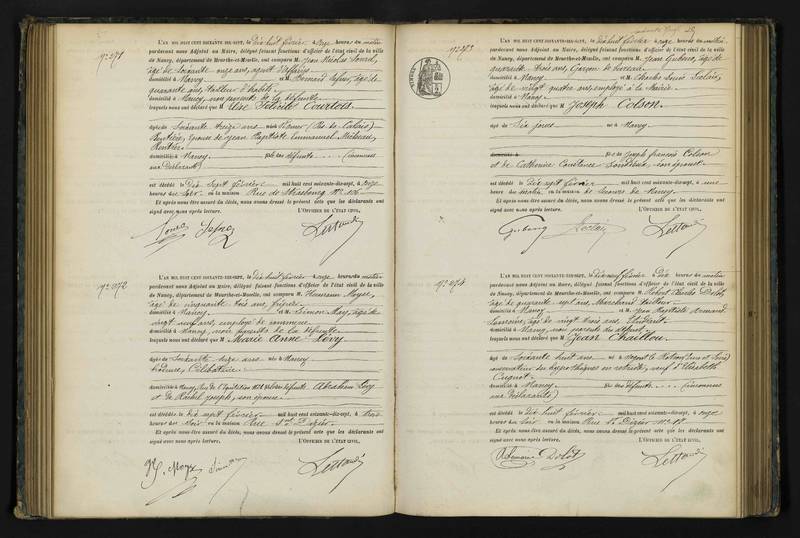 N° 271
L'AN MIL HUIT CENT SOIXANTE-DIX-SEPT, le Dix huit février à onze heures du matin
pardevant nous Adjoint au Maire, délégué faisant fonctions d'officier de l'état civil de la ville
de Nancy, département de Meurthe-et-Moselle, ont comparu M. Jean Nicolas
âgé de soixante onze ans, agent d'affaires
domicilié à Nancy et M. Bernard âgé de
quarante ans, tailleur d'habits
domicilié à Nancy, non parents de la défunte
lesquels nous ont déclaré que M Elise Félicité Courtois
âgée de Soixante treize ans née à (Pas de Calais)
Rentière, épouse de Jean Baptiste Emmanuel
Rentier
domiciliée à Nancy fille des défunts .... (inconnus
aux déclarants)
est décédée le Dix Sept février mil huit cent soixante-dix-sept, à onze
heures du soir en la maison Rue de Strasbourg N°
Et après nous être assuré du décès, nous avons dressé le présent acte que les déclarants ont
signé avec nous après lecture. L'OFFICIER DE L'ÉTAT CIVIL,
N° 272
L'AN MIL HUIT CENT SOIXANTE-DIX-SEPT, le Dix huit février à onze heures du matin
pardevant nous Adjoint au Maire, délégué faisant fonctions d'officier de l'état civil de la ville
de Nancy, département de Meurthe-et-Moselle, ont comparu M.
âgé de cinquante trois ans, fripier
domicilié à Nancy et M. Simon May, âgé de
vingt neuf ans, employé de commerce
domicilié à Nancy, non parents de la défunte
lesquels nous ont déclaré que M Marie Anne Lévy
âgée de Soixante seize ans née à Nancy
Célibataire
domiciliée à Nancy, Rue de l'Equitation fille des défunts Abraham Lévy
et de Rachel Joseph, son épouse
est décédée le Dix sept février mil huit cent soixante-dix-sept, à trois
heures du soir en la maison Rue St Dizier
Et après nous être assuré du décès, nous avons dressé le présent acte que les déclarants ont
signé avec nous après lecture. L'OFFICIER DE L'ÉTAT CIVIL,
N° 273
L'AN MIL HUIT CENT SOIXANTE-DIX-SEPT, le Dix huit février à onze heures du matin
pardevant nous Adjoint au Maire, délégué faisant fonctions d'officier de l'état civil de la ville
de Nancy, département de Meurthe-et-Moselle, ont comparu M. Jean âgé de
quarante trois ans, Garçon de bureau
domicilié à Nancy et M. Charles Louis
âgé de vingt quatre ans, employé à la Mairie
domicilié à Nancy
lesquels nous ont déclaré que M Joseph Colson
âgé de Six jours né à Nancy
fils de Joseph François Colson
et de Catherine Constance son épouse
est décédé le Dix sept février mil huit cent soixante-dix-sept, à une
heure du matin en la maison de Secours de Nancy
Et après nous être assuré du décès, nous avons dressé le présent acte que les déclarants ont
signé avec nous après lecture. L'OFFICIER DE L'ÉTAT CIVIL,
N° 274
L'AN MIL HUIT CENT SOIXANTE-DIX-SEPT, le Dix neuf février à Dix heures du matin
pardevant nous Adjoint au Maire, délégué faisant fonctions d'officier de l'état civil de la ville
de Nancy, département de Meurthe-et-Moselle, ont comparu M. Robert Charles Dolot
âgé de quarante sept ans, Marchand tailleur
domicilié à Nancy et M. Jean Baptiste Armand
âgé de vingt trois ans, Etudiant
domicilié à Nancy, non parents du défunt
lesquels nous ont déclaré que M Jean Chaillou
âgé de Soixante huit ans né à Nogent le Rotrou (Eure et Loir)
conservateur des hypothèques en retraite, veuf d'Elisabeth
Cugnot
domicilié à Nancy fils des défunts .... (inconnus
aux déclarants)
est décédé le Dix huit février mil huit cent soixante-dix-sept, à onze
heures du soir en la maison Rue St Dizier N°
Et après nous être assuré du décès, nous avons dressé le présent acte que les déclarants ont
signé avec nous après lecture. L'OFFICIER DE L'ÉTAT CIVIL,
Dolot